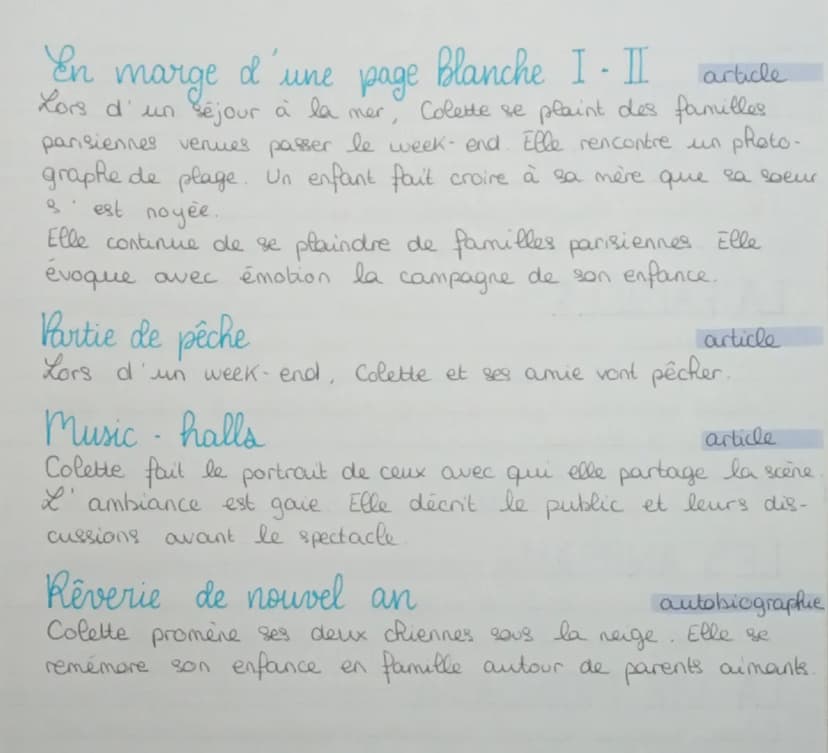 En marge d'une page Blanche I - II article
Lors d'un séjour à la mer, Colette se plaint des familles
parisiennes venues passer le week-end. Elle rencontre un photo-
graphe de plage. Un enfant fait croire à sa mère que sa soeur
s'est noyée.
Elle continue de se plaindre de familles parisiennes Elle
évoque avec émotion la campagne de son enfance.
Partie de pêche article
Lors d'un week-end, Colette et ses amie vont pêcher.
Music-halls article
Colette fait le portrait de ceux avec qui elle partage la scène
L'ambiance est gaie Elle décrit le public et leurs dis-
cussions avant le spectacle
Rêverie de nouvel an autobiographie
Colette promène ses deux chiennes sous la neige. Elle se
remémore son enfance en famille autour de parents aimants.